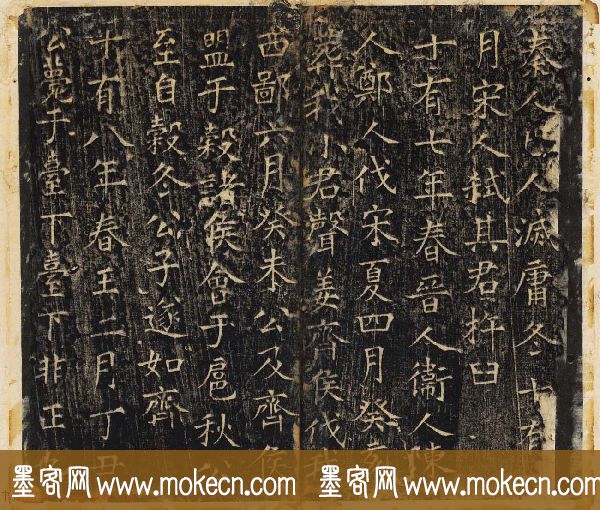 秦人巴人滅庸冬十有
月宋人弒其君杵臼
十有七年春晉人衞人陳
人鄭人伐宋夏四月癸亥
葬我小君聲姜齊侯伐我
西鄙六月癸未公及齊侯
盟于穀諸侯會于扈秋公
至自穀冬公子遂如齊
十有八年春王二月丁丑
公薨于臺下臺下非正
墨客网 www.mokecn.com 墨客网 www.mokecn.com